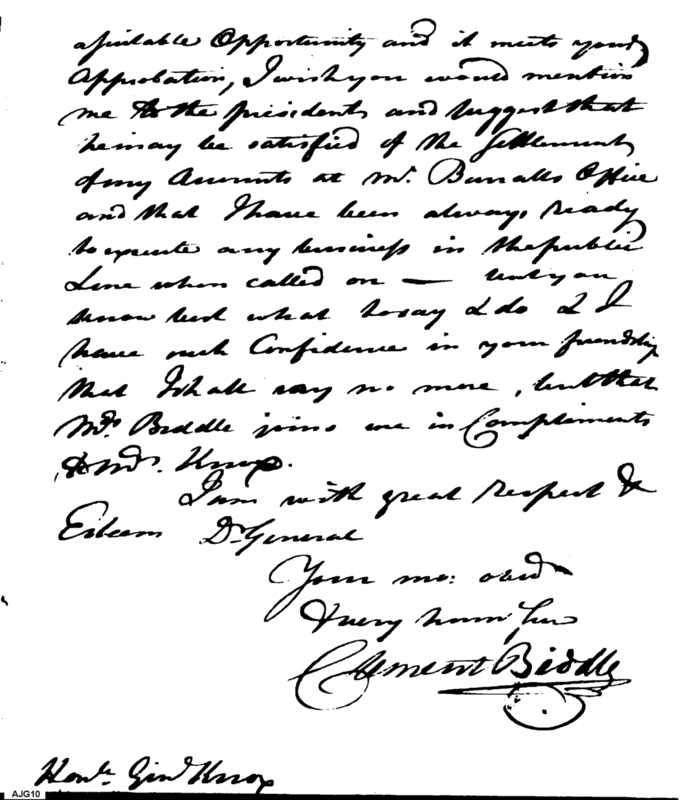 a suitable Opportunity and it meets your
Approbation, I wish you would mention
me to the president and suggest that
he may be satisfied of the Settlement
of my Accounts at Mr. Burralls Office
and that I have been always ready
to execute any business in the public
Line when called on — but you
know best what to say & do & I
have such Confidence in your friendship
that I shall say no more, but that
Mrs. Biddle joins me in Compliments
to Mrs. Knox.
I am with great Respect &
Esteem Dr General
Your mo: obed
& very hum Ser
Clement Biddle
Honble. Genl Knox
AJG10